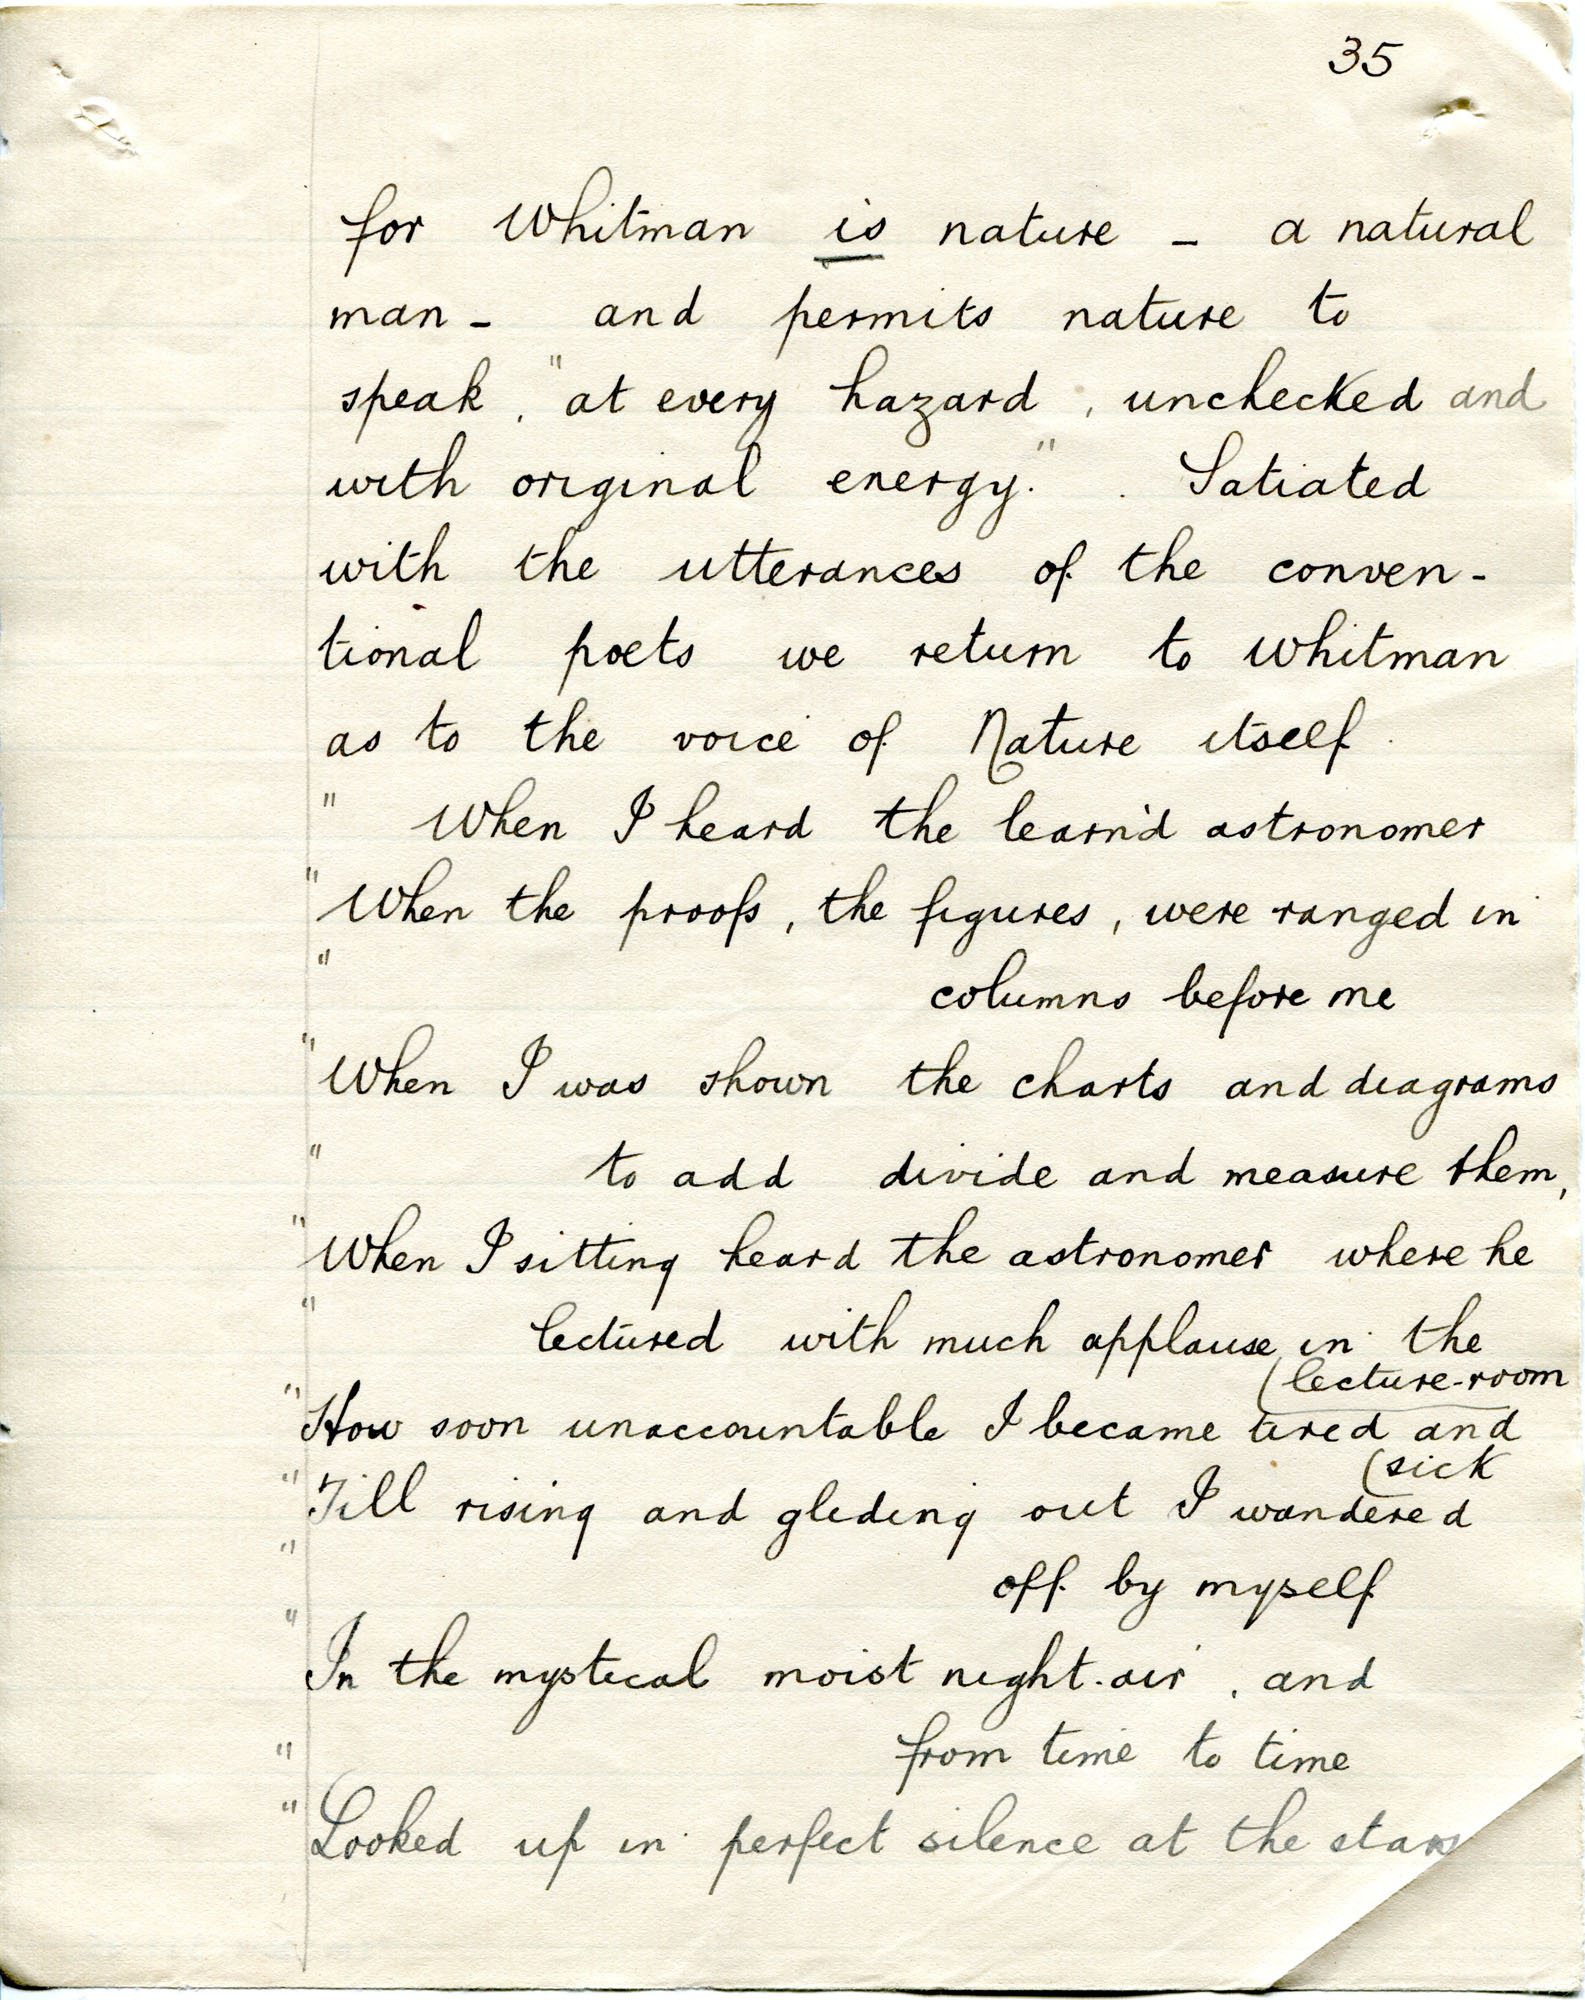 35
for Whitman is nature - a natural
man - and permits nature to
speak, "at every hazard, unchecked and
with original energy." . Satiated
with the utterances of the conven-
tional poets we return to Whitman
as to the voice of Nature itself.
" When I heard the learn'd astronomer
" When the proofs, the figures, were ranged in
" columns before me
" When I was shown the charts and diagrams
" to add divide and measure them,
" When I sitting heard the astronomer where he
" lectured with much applause in the
(lecture-room
" How soon unaccountable I became tired and
(sick
" Till rising and gliding out I wandered
" off by myself
" In the mystical moist night-air, and
" from time to time
" Looked up in perfect silence at the stars